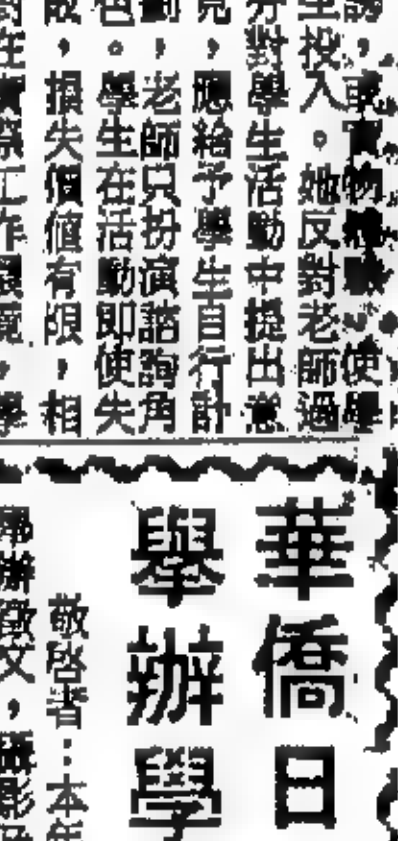 使學
生投入。她反對老師過
分對學生活動中提出意
見，應給予學生自行計
劃，老師只扮演諮詢角
色。學生在活動即使失
敗，損失價值有限，相
實際工作
華僑日
舉辦學
敬啓者：本年
舉辦徵文，攝影